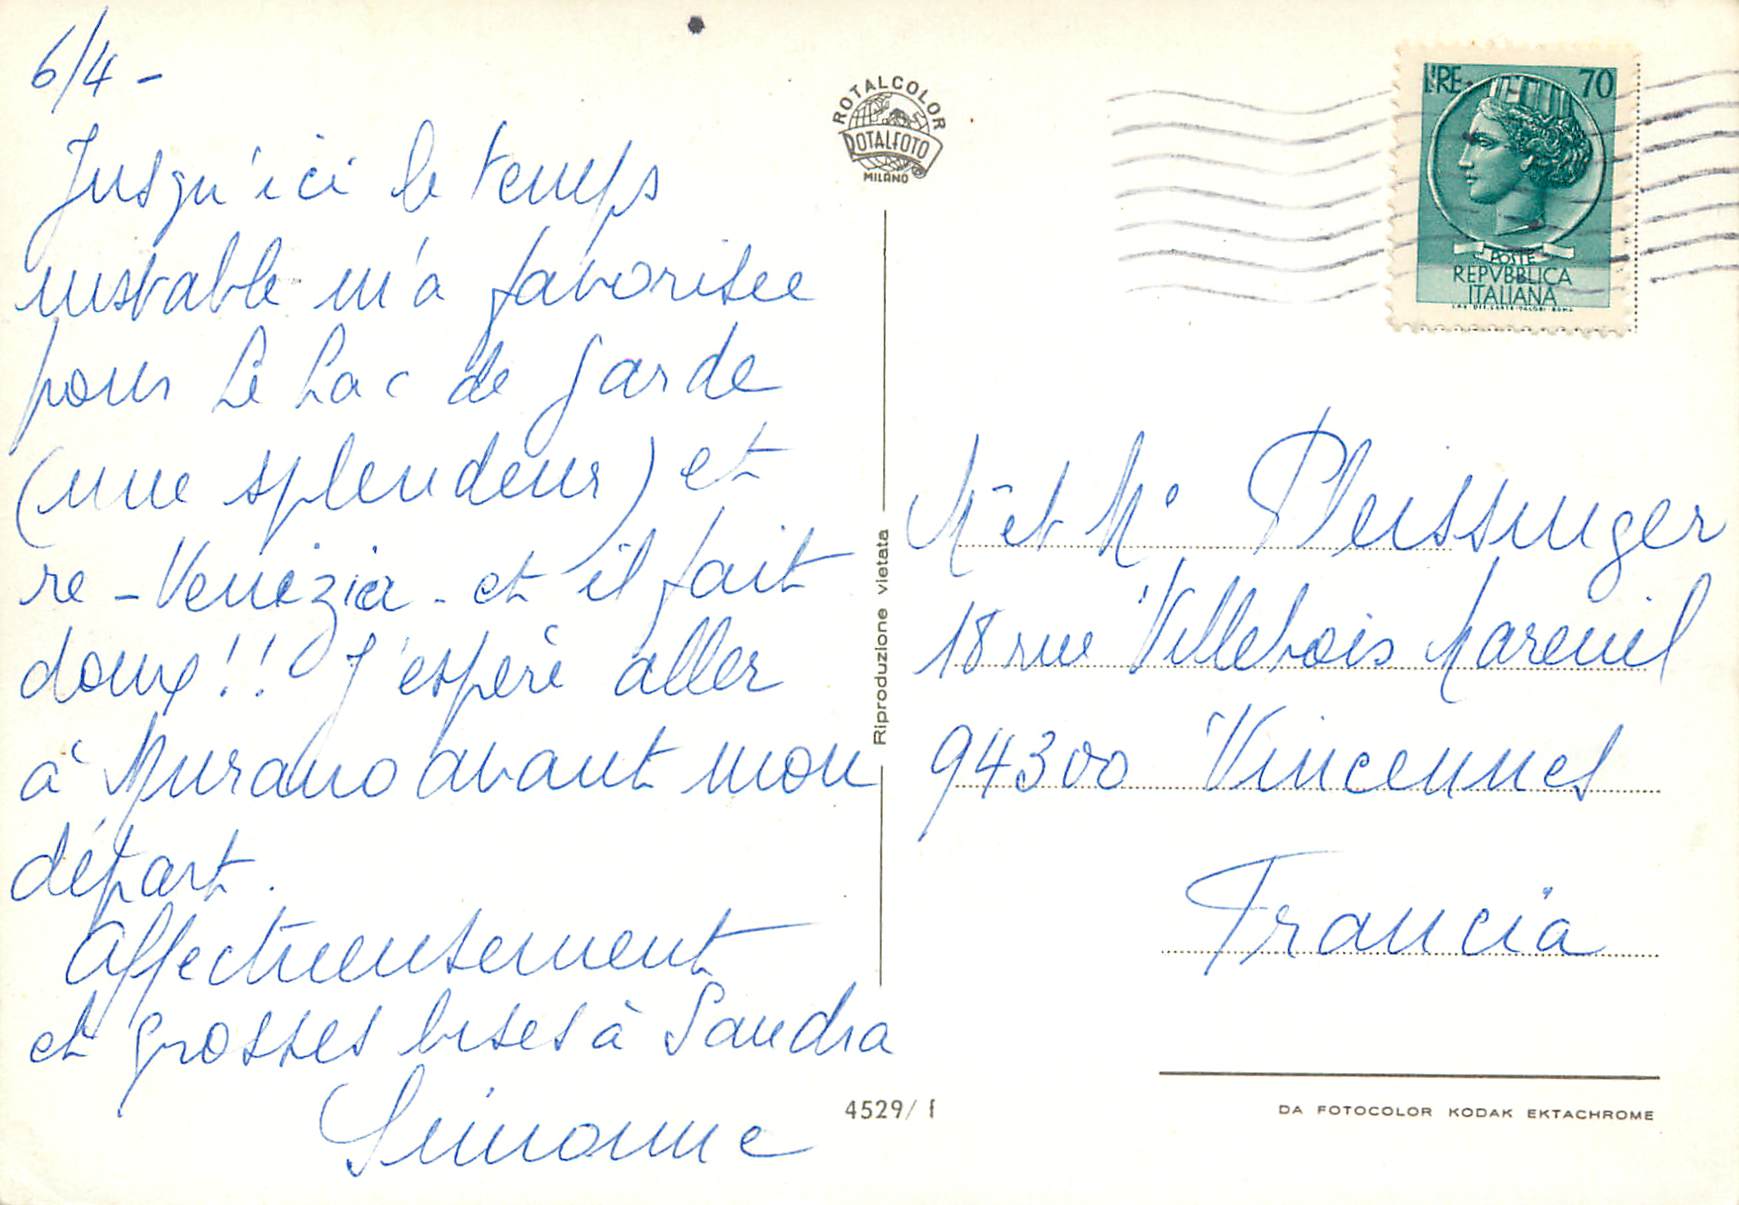 6/4 -
Jusqu'ici le temps
instable m'a favorisée
pour le Lac de Garde
(une splendeur) et
re-Venezia - et il fait
doux!! J'espère aller
à Murano avant mon
départ.
Affectueusement
et grosses bises à Sandra
Simonne
ROTALCOLOR
ROTALFOTO
MILANO
Riproduzione vietata
4529/ f
LIRE 70
POSTE
REPVBBLICA
ITALIANA
M et Me Pleissinger
18 rue Villebois Mareuil
94300 Vincennes
Francia
DA FOTOCOLOR KODAK EKTACHROME